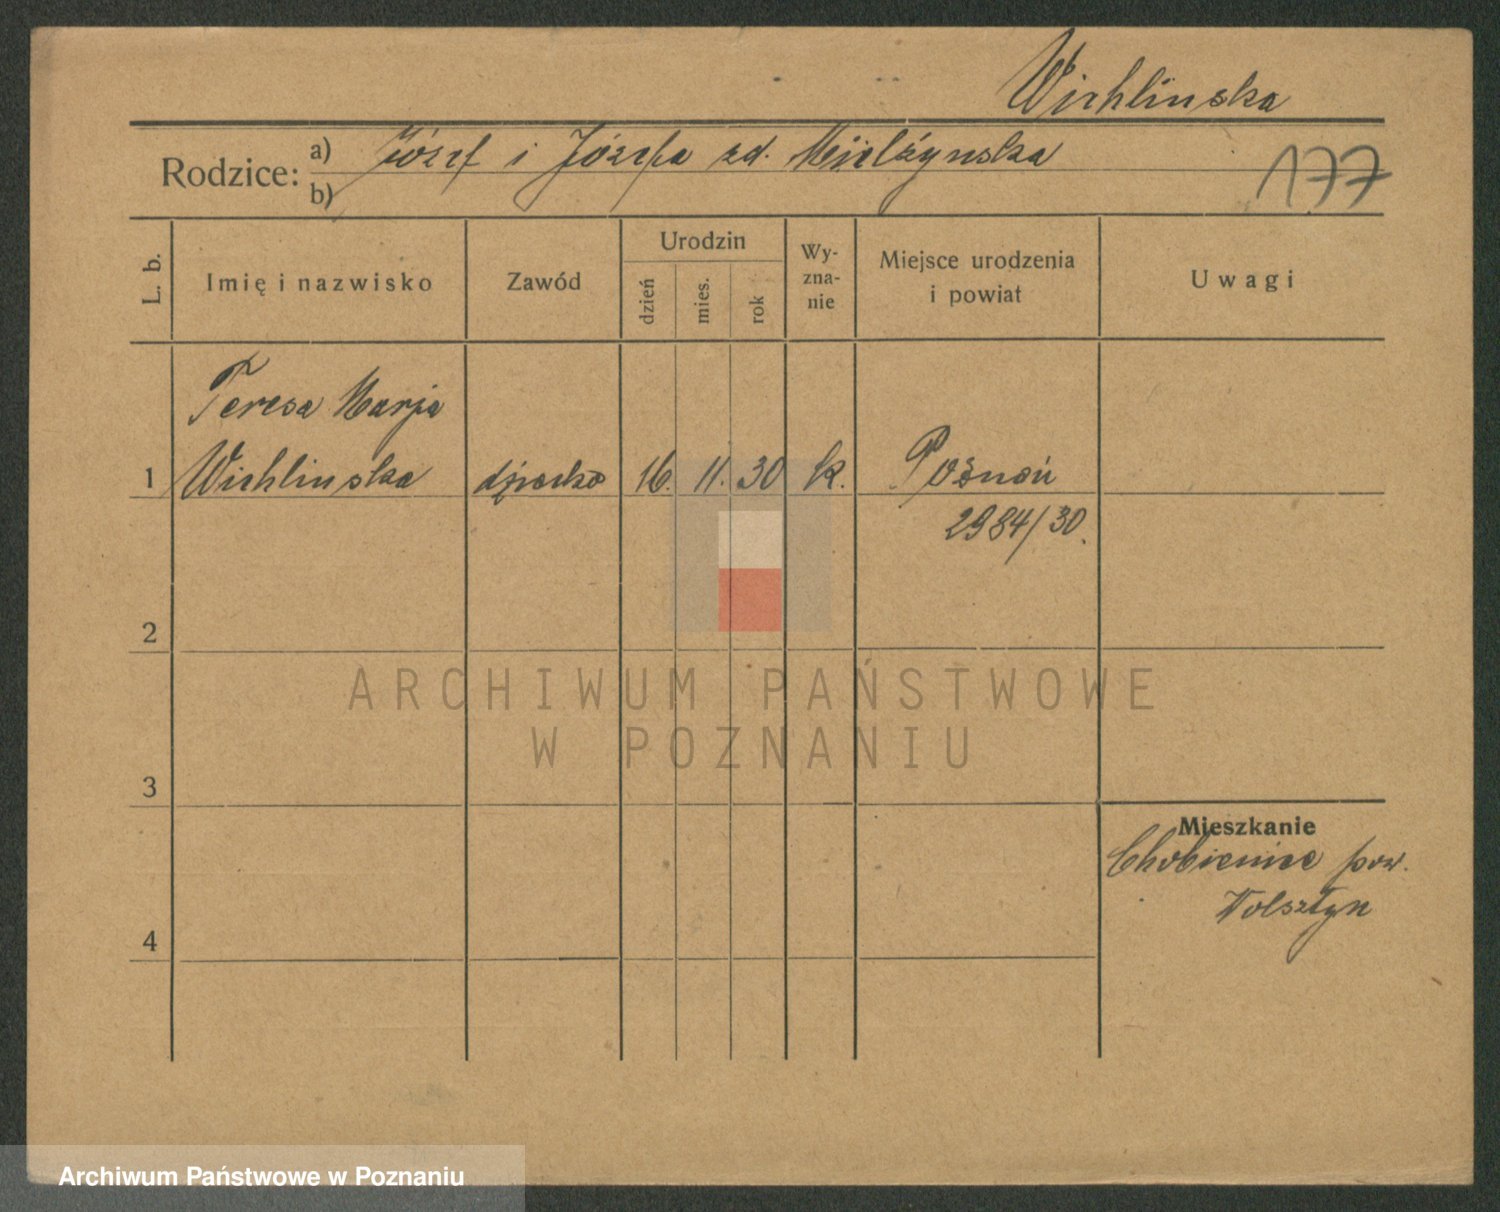 Wichlinska
Rodzice: a) Józef i Józefa zd. Mielżynska
b)
177
L. b.
Imię i nazwisko
Zawód
Urodzin
dzień
mies.
rok
Wy-
zna-
nie
Miejsce urodzenia
i powiat
Uwagi
Teresa Marja
1 Wichlinska dziecko 16. 11. 30 k. Poznań
2984/30.
2
3
4
Mieszkanie
Chobienice pow.
Wolsztyn
ARCHIWUM PAŃSTWOWE
W POZNANIU
Archiwum Państwowe w Poznaniu